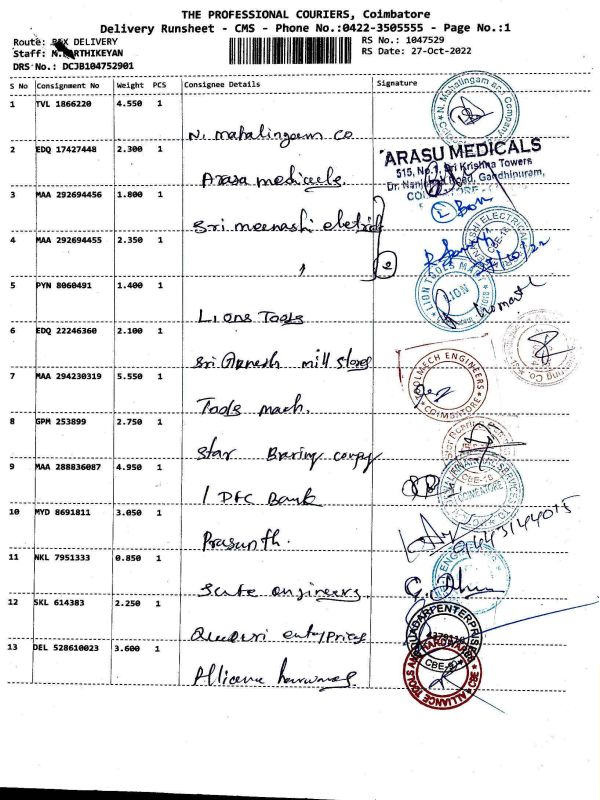 THE PROFESSIONAL COURIERS, Coimbatore
Delivery Runsheet - CMS - Phone No.:0422-3505555 - Page No.:1
Route: DELIVERY
RS No.: 1047529
Staff: M.KARTHIKEYAN
RS Date: 27-Oct-2022
DRS No.: DCJB104752901
S No Consignment No Weight PCS Consignee Details Signature
1 TVL 1866220 4.550 1
N. Mahalingam co
N. Mahalingam and Company
2 EDQ 17427448 2.300 1
Arasa medicals.
ARASU MEDICALS
515, No.1, Sri Krishna Towers
Dr. Road, Gandhipuram,
3 MAA 292694456 1.800 1
Sri meenashi eletrich
4 MAA 292694455 2.350 1
ELECTRICAL
CBE-18
5 PYN 8060491 1.400 1
Lions Tools
LION TOOLS MART
LION
6 EDQ 22246360 2.100 1
Sri Ganesh mill stores
7 MAA 294230319 5.550 1
Tools mach.
TOOLMECH ENGINEERS
COIMBATORE
8 GPM 253899 2.750 1
Star Bearing compy
CBE-18
9 MAA 288836087 4.950 1
IDFC Bank
COIMBATORE
10 MYD 8691811 3.050 1
Prasunth.
11 NKL 7951333 0.850 1
engineers
12 SKL 614383 2.250 1
enterprices
13 DEL 528610023 3.600 1
Alliance
ALLIANCE TOOLS
HARDWARE
CBE